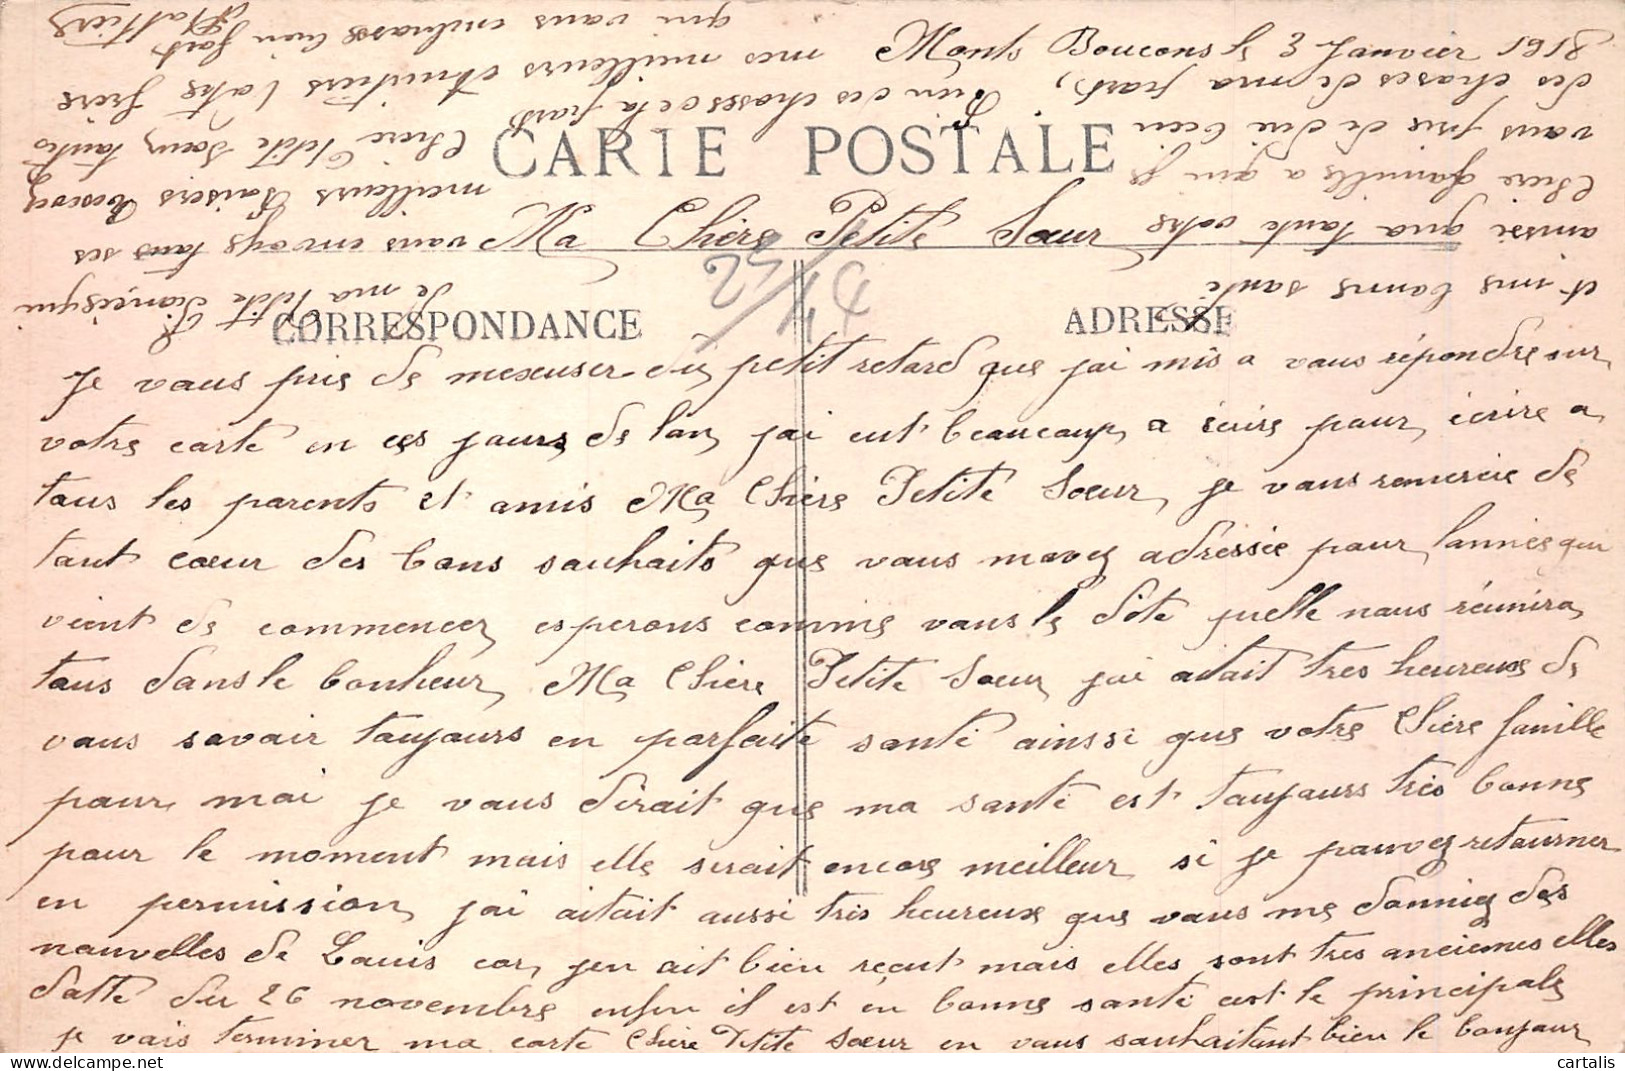 Monts Boucons le 3 Janvier 1918
CARTE POSTALE
Ma Chère Petite Sœur
CORRESPONDANCE
ADRESSE
Je vous prie de mexcuser du petit retard que jai mis a vous répondre sur
votre carte en ces jours de lan jai eut beaucoup a écire pour écrire a
tous les parents et amis Ma Chère Petite Sœur je vous remercie de
tout cœur des bons souhaits que vous mavez adressée pour lannée qui
vient de commencer esperons comme vous le dite quelle nous réunira
tous dans le bonheur Ma Chère Petite Sœur jai aitait tres heureuse de
vous savoir toujours en parfaite santé ainssi que votre Chère famille
pour moi je vous dirait que ma santé est toujours trés bonne
pour le moment mais elle serait encore meilleur si je pouvez retourner
en permission jai aitait aussi trés heureux que vous me donniez des
nouvelles de Louis car jen ait bien reçut mais elles sont tres anciennes elles
datte du 26 novembre enfin il est en bonne santé cest le principale
je vais terminer ma carte Chère Petite Sœur en vous souhaitant bien le bonjour
et une bonne santé
ainssi qua toute votre
Chère famille a qui je
vous prie de dire bien
des choses de ma part,
Bien des choses de la part
de ma Petite
vous envoye tous ses
meilleurs Baisers Recevez
Chère Petite Sœur toutes
mes meilleurs Amitiers Votre frère
qui vous embrasse bien fort
25/44
cartalis